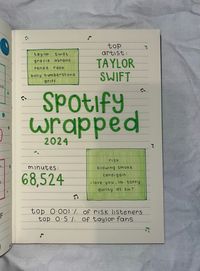 taylor swift
gracie abrams
renee rapp
baby tumberstone
griff
top
artist:
TAYLOR
SWIFT
Spotify
wrapped
2024
minutes:
68,524
risk
blowing smoke
cardigan
i love you, im sorry
guilty as sin?
top 0.001% of risk listeners
top 0.5% of taylor fans